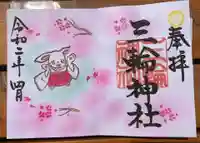 奉拝
三輪神社
令和二年四月